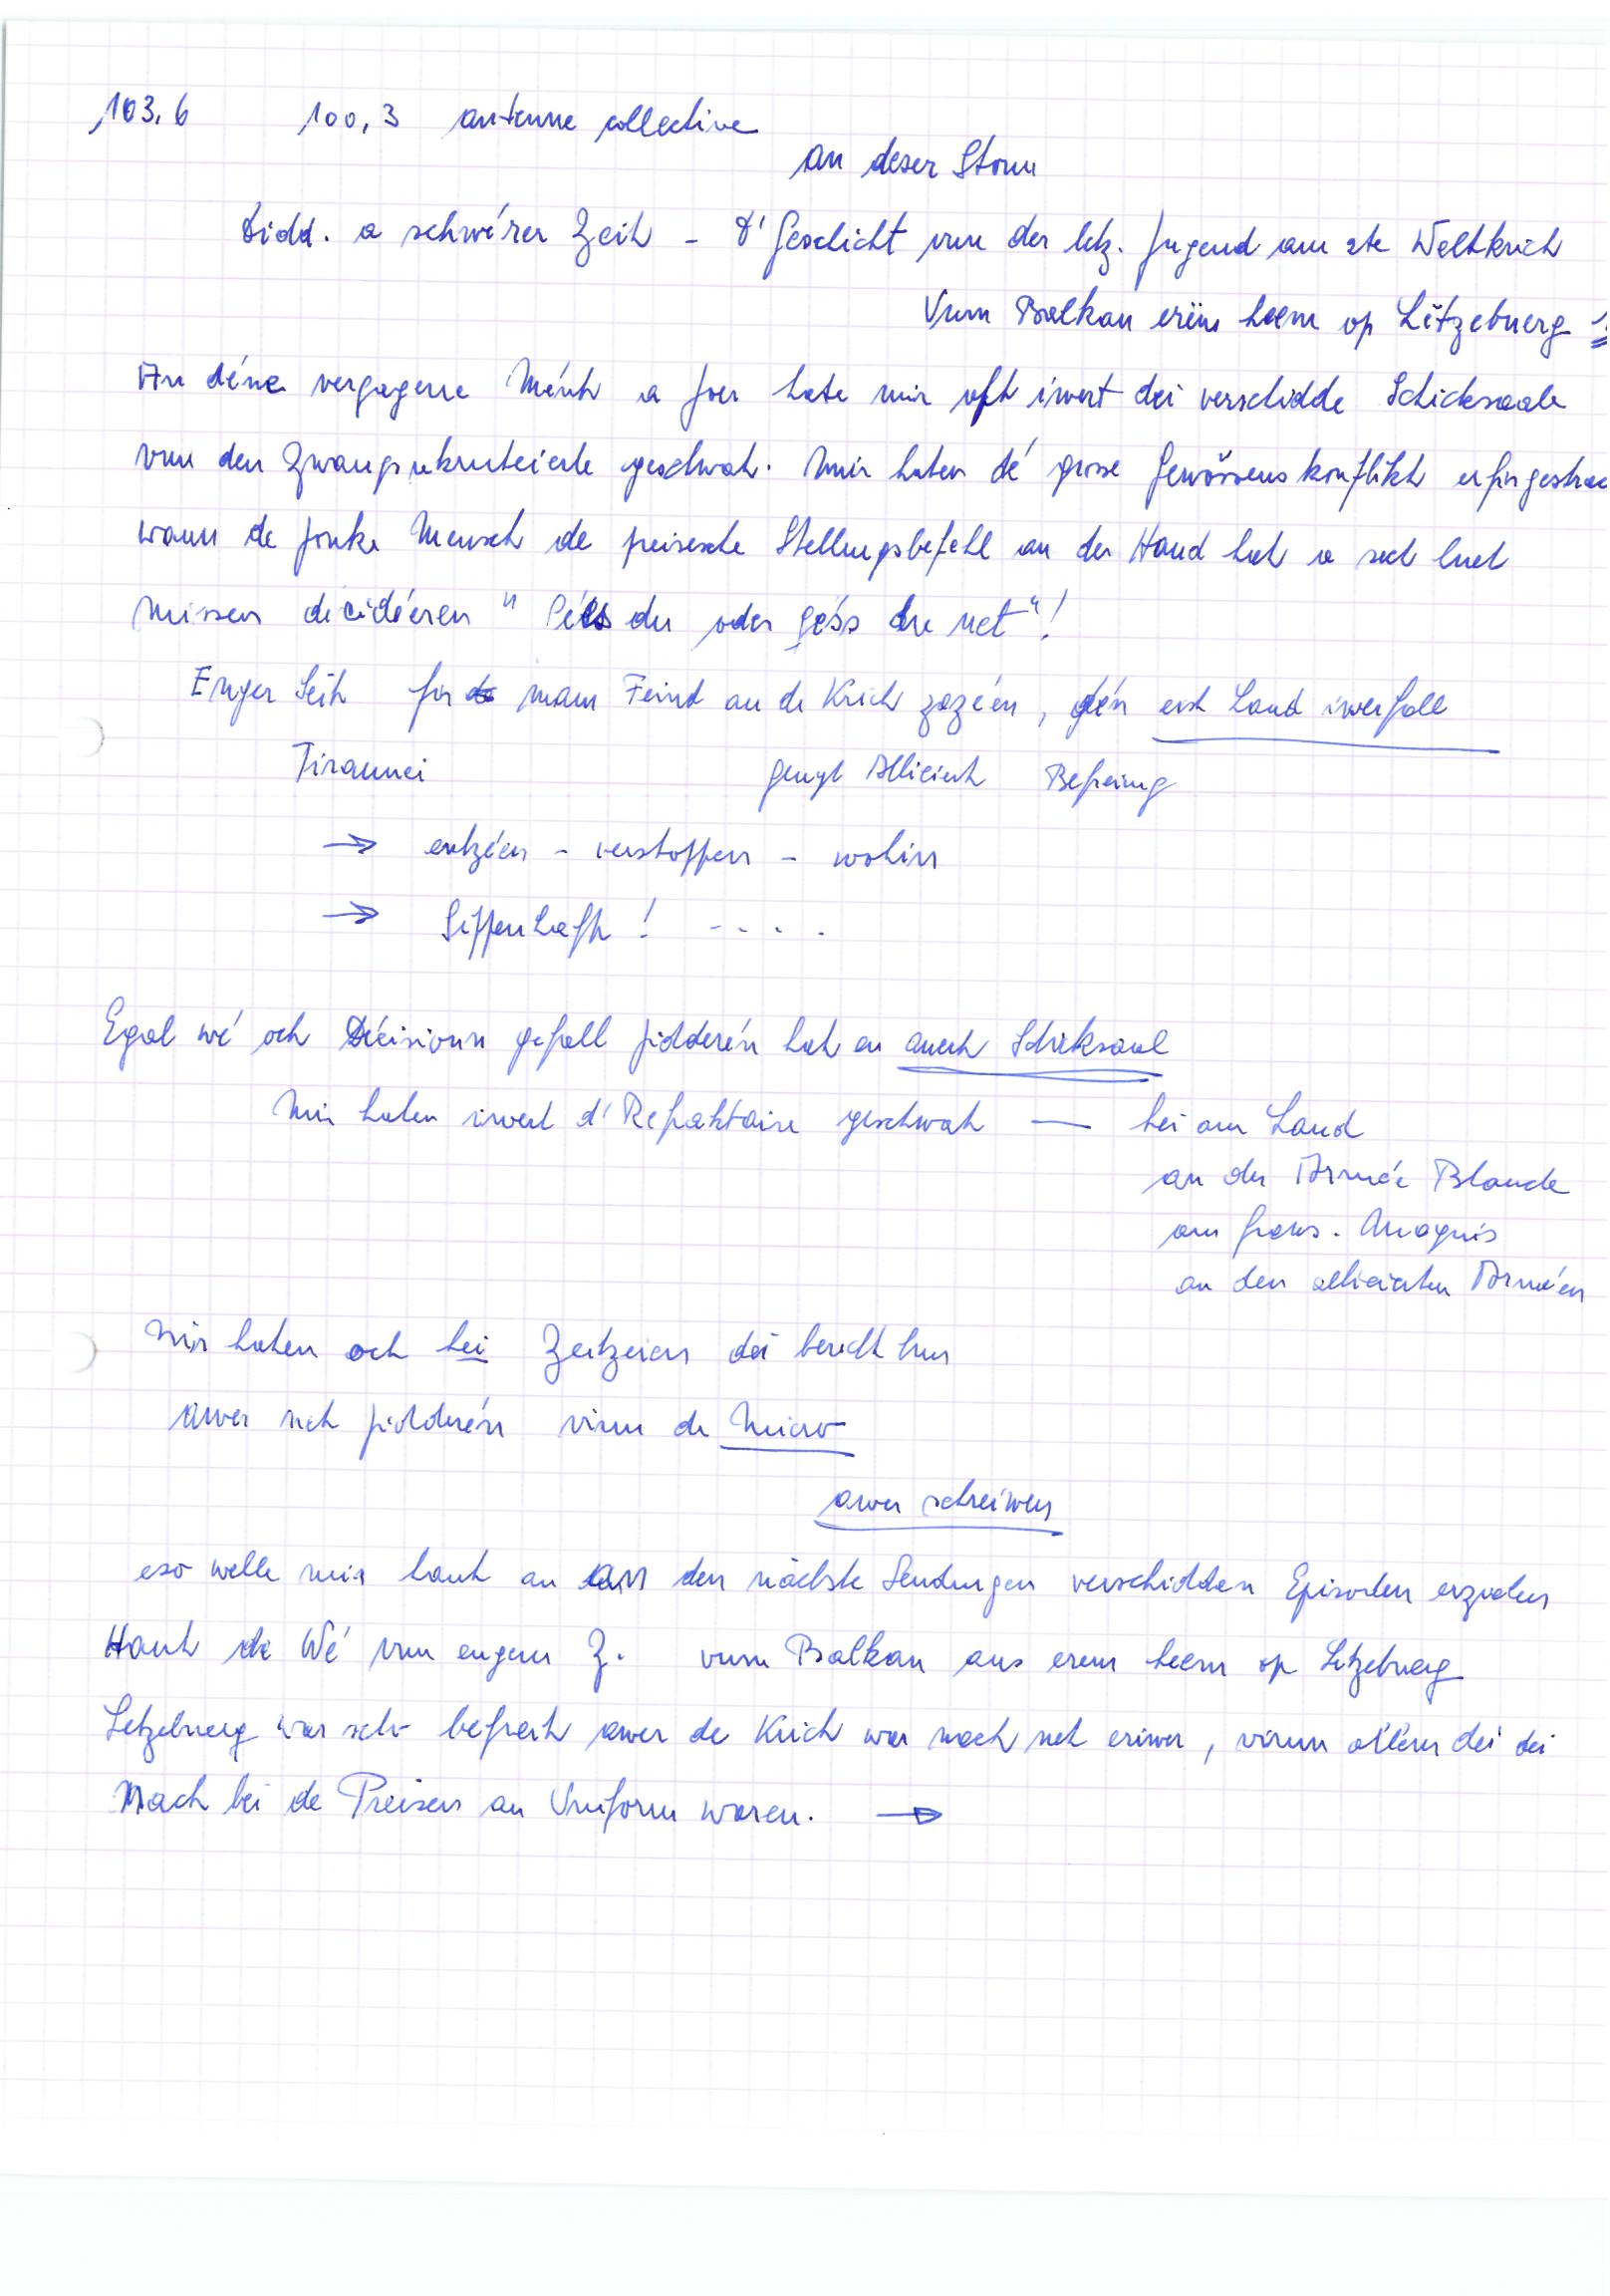 103,6 100,3 antenne collective
an deser Stonn
Lidd. a schwéier Zeit - D'Geschicht vun der letz. Jugend am 2te Weltkrich
Vum Balkan erëm heem op Lëtzebuerg
An déne vergagene Méint a Joer hate mir oft iwert déi verschidde Schicksaale
vun den Zwangsrekrutéierte geschwat. Mir haten dé grosse Gewëssenskonflikt
wann de jonke Mensch de preisesche Stellungsbefehl an der Hand hat a sech huet
missen decidéeren " Géés du oder géss du net"!
Enger Seit fir mam Feind an de Krich zezéen, dén est Land iwerfall
Tirannei géngt Alliéiert Befreiung
→ entzéen - verstoppen - wohin
→ Sippenhaft! - - . .
Egal wé och Décisioun gefall jidderén hat en anert Schiksaal
Mir haten iwert d'Refraktaire geschwat — hei am Land
an der Armée Blanche
am frans. Maquis
an den alliéierten Arméen
Mir haten och hei Zeitzeien déi bericht hun
awer net jidderén virun de Micro
awer schreiwen
eso welle mir haut an an den nächste Sendungen verschidden Episoden erzielen
Haut de Wé vun engem Z. vum Balkan aus erem heem op Letzebuerg
Letzebuerg war scho befreit awer de Krich war nach net eriwer, virun allem déi déi
Nach bei de Preisen an Uniform waren. →